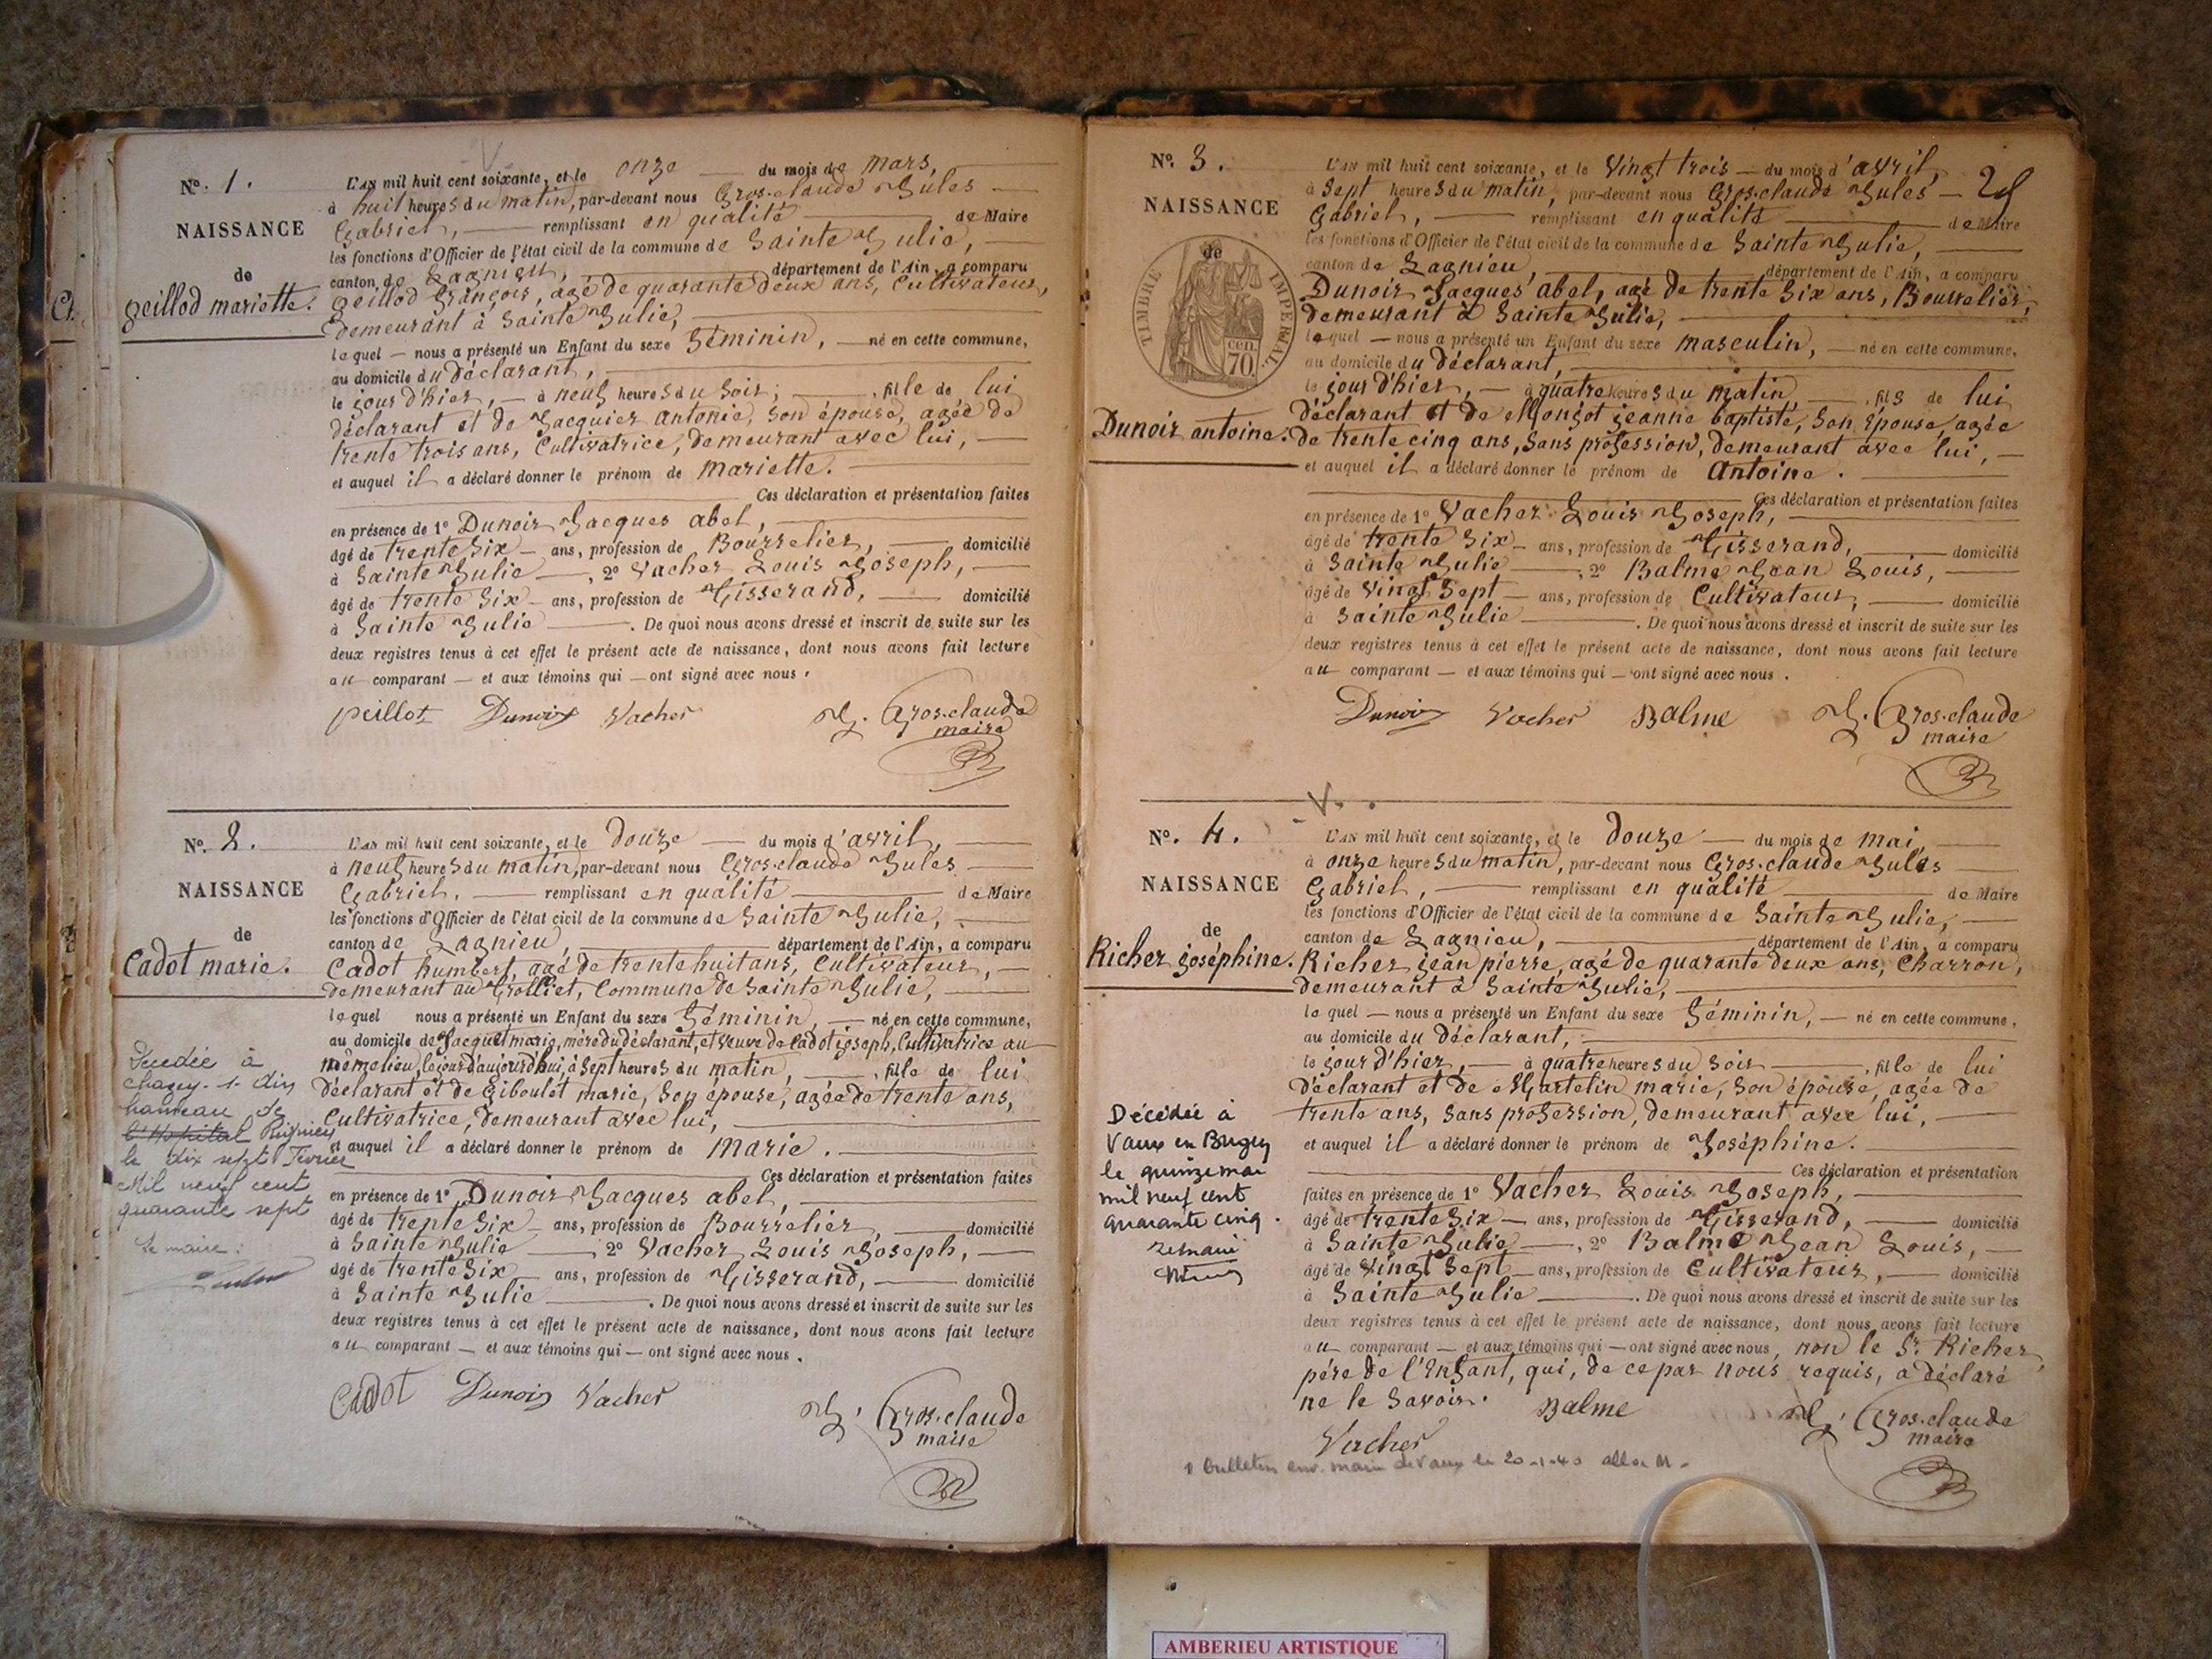 Nº. 1.
NAISSANCE
de
peillod mariette.
L'AN mil huit cent soixante, et le onze du mois de mars,
à huit heures du matin, par-devant nous Gros-claude Jules
Gabriel, remplissant en qualité de Maire
les fonctions d'Officier de l'état civil de la commune de Sainte Julie,
canton de Lagnieu, département de l'Ain, a comparu
peillod françois, agé de quarante deux ans, Cultivateur,
demeurant à Sainte Julie,
lequel nous a présenté un Enfant du sexe féminin, né en cette commune,
au domicile du déclarant,
le jour d'hier, à neuf heures du soir, fille de lui
déclarant et de Jacquier antonie, son épouse, agée de
trente trois ans, Cultivatrice, demeurant avec lui,
et auquel il a déclaré donner le prénom de mariette.
Ces déclaration et présentation faites
en présence de 1º Dunoir Jacques abel,
âgé de trente six ans, profession de Bourrelier, domicilié
à Sainte Julie, 2º Vacher Louis Joseph,
âgé de trente six ans, profession de Tisserand, domicilié
à Sainte Julie. De quoi nous avons dressé et inscrit de suite sur les
deux registres tenus à cet effet le présent acte de naissance, dont nous avons fait lecture
au comparant et aux témoins qui ont signé avec nous.
peillot Dunoir Vacher J. Gros-claude
maire
Nº. 2.
NAISSANCE
de
Cadot marie.
L'AN mil huit cent soixante, et le douze du mois d'avril,
à neuf heures du matin, par-devant nous Gros-claude Jules
Gabriel, remplissant en qualité de Maire
les fonctions d'Officier de l'état civil de la commune de Sainte Julie,
canton de Lagnieu, département de l'Ain, a comparu
Cadot humbert, agé de trente huit ans, Cultivateur,
demeurant au Trolliet, Commune de Sainte Julie,
lequel nous a présenté un Enfant du sexe féminin, né en cette commune,
au domicile de Jacquet marie, mère du déclarant, et veuve de Cadot joseph, Cultivatrice au
même lieu, le jour d'aujourd'hui, à sept heures du matin, fille de lui
déclarant et de Giboulet marie, son épouse, agée de trente ans,
Cultivatrice, demeurant avec lui,
et auquel il a déclaré donner le prénom de marie.
Ces déclaration et présentation faites
en présence de 1º Dunoir Jacques abel,
âgé de trente six ans, profession de Bourrelier, domicilié
à Sainte Julie, 2º Vacher Louis Joseph,
âgé de trente six ans, profession de Tisserand, domicilié
à Sainte Julie. De quoi nous avons dressé et inscrit de suite sur les
deux registres tenus à cet effet le présent acte de naissance, dont nous avons fait lecture
au comparant et aux témoins qui ont signé avec nous.
Cadot Dunoir Vacher J. Gros-claude
maire
Décedée à
hameau de
l'Hopital Rignieu
le dix sept Février
Mil neuf cent
quarante sept
Le maire:
Nº. 3.
NAISSANCE
de
TIMBRE IMPERIAL
70 cen.
Dunoir antoine.
L'AN mil huit cent soixante, et le Vingt trois du mois d'avril,
à sept heures du matin, par-devant nous Gros-claude Jules
Gabriel, remplissant en qualité de Maire
les fonctions d'Officier de l'état civil de la commune de Sainte Julie,
canton de Lagnieu, département de l'Ain, a comparu
Dunoir Jacques abel, agé de trente six ans, Bourrelier,
demeurant à Sainte Julie,
lequel nous a présenté un Enfant du sexe masculin, né en cette commune,
au domicile du déclarant,
le jour d'hier, à quatre heures du matin, fils de lui
déclarant et de Mongot jeanne baptiste, son épouse, agée
de trente cinq ans, sans profession, demeurant avec lui,
et auquel il a déclaré donner le prénom de Antoine.
Ces déclaration et présentation faites
en présence de 1º Vacher Louis Joseph,
âgé de trente six ans, profession de Tisserand, domicilié
à Sainte Julie, 2º Balme Jean Louis,
âgé de Vingt sept ans, profession de Cultivateur, domicilié
à Sainte Julie. De quoi nous avons dressé et inscrit de suite sur les
deux registres tenus à cet effet le présent acte de naissance, dont nous avons fait lecture
au comparant et aux témoins qui ont signé avec nous.
Dunoir Vacher Balme J. Gros-claude
maire
Nº. 4.
NAISSANCE
de
Richer joséphine.
L'AN mil huit cent soixante, et le douze du mois de mai,
à onze heures du matin, par-devant nous Gros-claude Jules
Gabriel, remplissant en qualité de Maire
les fonctions d'Officier de l'état civil de la commune de Sainte Julie,
canton de Lagnieu, département de l'Ain, a comparu
Richer jean pierre, agé de quarante deux ans, Charron,
demeurant à Sainte Julie,
lequel nous a présenté un Enfant du sexe féminin, né en cette commune,
au domicile du déclarant,
le jour d'hier, à quatre heures du soir, fille de lui
déclarant et de Martelin marie, son épouse, agée de
trente ans, sans profession, demeurant avec lui,
et auquel il a déclaré donner le prénom de Joséphine.
Ces déclaration et présentation
faites en présence de 1º Vacher Louis Joseph,
âgé de trente six ans, profession de Tisserand, domicilié
à Sainte Julie, 2º Balme Jean Louis,
âgé de Vingt sept ans, profession de Cultivateur, domicilié
à Sainte Julie. De quoi nous avons dressé et inscrit de suite sur les
deux registres tenus à cet effet le présent acte de naissance, dont nous avons fait lecture
au comparant et aux témoins qui ont signé avec nous, non le Sr. Richer,
père de l'enfant, qui, de ce par nous requis, a déclaré
ne le savoir. Balme J. Gros-claude
Vacher maire
Décédée à
Vaux en Bugey
le quinze mai
mil neuf cent
quarante cinq.
1 bulletin env. mairie de Vaux le 20-1-40
AMBERIEU ARTISTIQUE